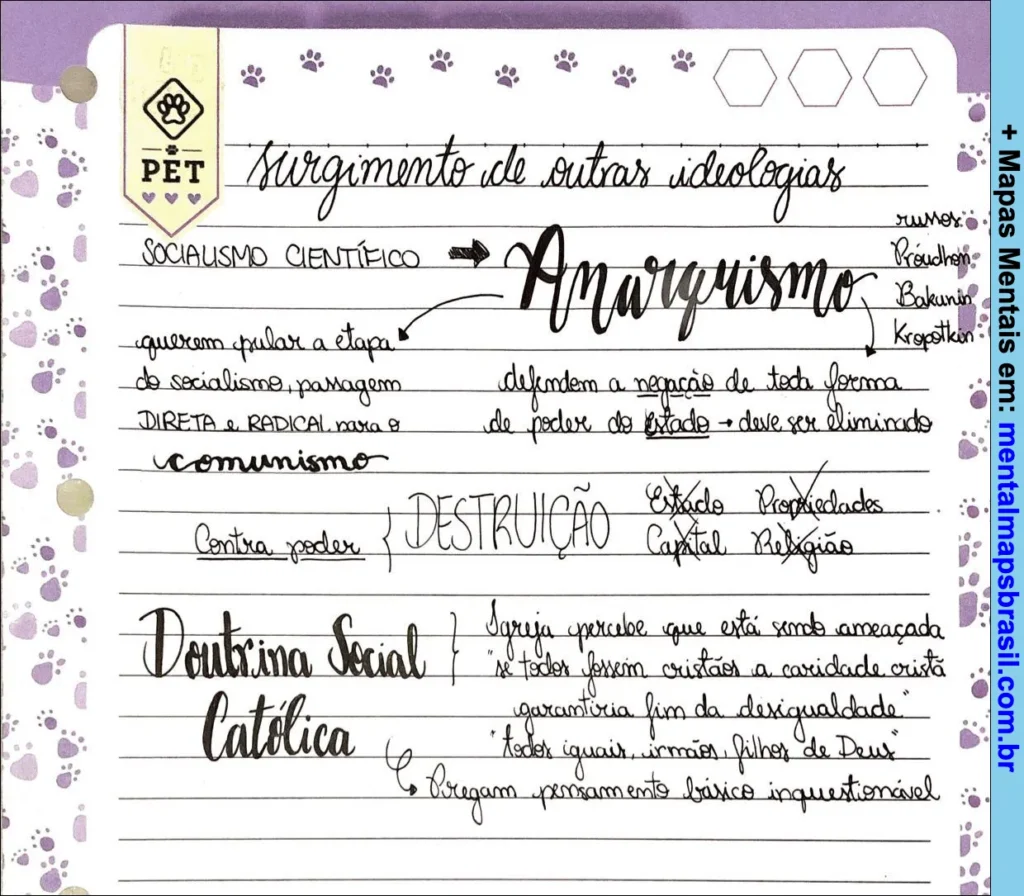 PET
surgimento de outras ideologias
SOCIALISMO CIENTÍFICO → Anarquismo
russos
Proudhon
Bakunin
Kropotkin
querem pular a etapa
do socialismo, passagem
DIRETA e RADICAL para o
comunismo
defendem a negação de toda forma
de poder do estado → deve ser eliminado
Contra poder { DESTRUIÇÃO
Estado Propriedades
Capital Religião
Doutrina Social
Católica
} Igreja percebe que está sendo ameaçada
"se todos fossem cristãos a caridade cristã
garantiria fim da desigualdade"
"todos iguais, irmãos, filhos de Deus"
Pregam pensamento básico inquestionável
+ Mapas Mentais em: mentalmapsbrasil.com.br